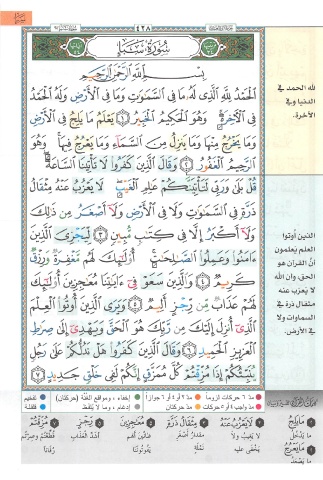 ٤٢٨
سُورَةُ سَبَإٍ
بِسْمِ اللَّهِ الرَّحْمَٰنِ الرَّحِيمِ
الْحَمْدُ لِلَّهِ الَّذِي لَهُ مَا فِي السَّمَاوَاتِ وَمَا فِي الْأَرْضِ وَلَهُ الْحَمْدُ
فِي الْآخِرَةِ وَهُوَ الْحَكِيمُ الْخَبِيرُ ١ يَعْلَمُ مَا يَلِجُ فِي الْأَرْضِ
وَمَا يَخْرُجُ مِنْهَا وَمَا يَنزِلُ مِنَ السَّمَاءِ وَمَا يَعْرُجُ فِيهَا وَهُوَ
الرَّحِيمُ الْغَفُورُ ٢ وَقَالَ الَّذِينَ كَفَرُوا لَا تَأْتِينَا السَّاعَةُ
قُلْ بَلَىٰ وَرَبِّي لَتَأْتِيَنَّكُمْ عَالِمِ الْغَيْبِ لَا يَعْزُبُ عَنْهُ مِثْقَالُ
ذَرَّةٍ فِي السَّمَاوَاتِ وَلَا فِي الْأَرْضِ وَلَا أَصْغَرُ مِن ذَٰلِكَ
وَلَا أَكْبَرُ إِلَّا فِي كِتَابٍ مُّبِينٍ ٣ لِّيَجْزِيَ الَّذِينَ
آمَنُوا وَعَمِلُوا الصَّالِحَاتِ أُولَٰئِكَ لَهُم مَّغْفِرَةٌ وَرِزْقٌ
كَرِيمٌ ٤ وَالَّذِينَ سَعَوْ فِي آيَاتِنَا مُعَاجِزِينَ أُولَٰئِكَ
لَهُمْ عَذَابٌ مِّن رِّجْزٍ أَلِيمٌ ٥ وَيَرَى الَّذِينَ أُوتُوا الْعِلْمَ
الَّذِي أُنزِلَ إِلَيْكَ مِن رَّبِّكَ هُوَ الْحَقَّ وَيَهْدِي إِلَىٰ صِرَاطِ
الْعَزِيزِ الْحَمِيدِ ٦ وَقَالَ الَّذِينَ كَفَرُوا هَلْ نَدُلُّكُمْ عَلَىٰ رَجُلٍ
يُنَبِّئُكُمْ إِذَا مُزِّقْتُمْ كُلَّ مُمَزَّقٍ إِنَّكُمْ لَفِي خَلْقٍ جَدِيدٍ ٧
لله الحمد في
الدنيا وفي
الآخرة.
الذين أوتوا
العلم يعلمون
أن القرآن هو
الحق، وان الله
لا يعزب عنه
مثقال ذرة في
السماوات ولا
في الأرض.
مد ٦ حركات لزوما
مد ٢ أو ٤ أو ٦ جوازا
إخفاء، ومواقع الغنة (حركتان)
تفخيم
مد واجب ٤ أو ٥ حركات
مد حركتان
إدغام، وما لا يلفظ
قلقلة
مَا يَلِجُ
مَا يَدْخُلُ
مَا يَعْرُجُ
مَا يَصْعَدُ
لَا يَعْزُبُ عَنْهُ
مِثْقَالُ ذَرَّةٍ
مِقْدَارُ أَصْغَرِ
نَمْلَةٍ
مُعَاجِزِينَ
رِجْزٍ
أَشَدِّ الْعَذَابِ
مُزِّقْتُمْ